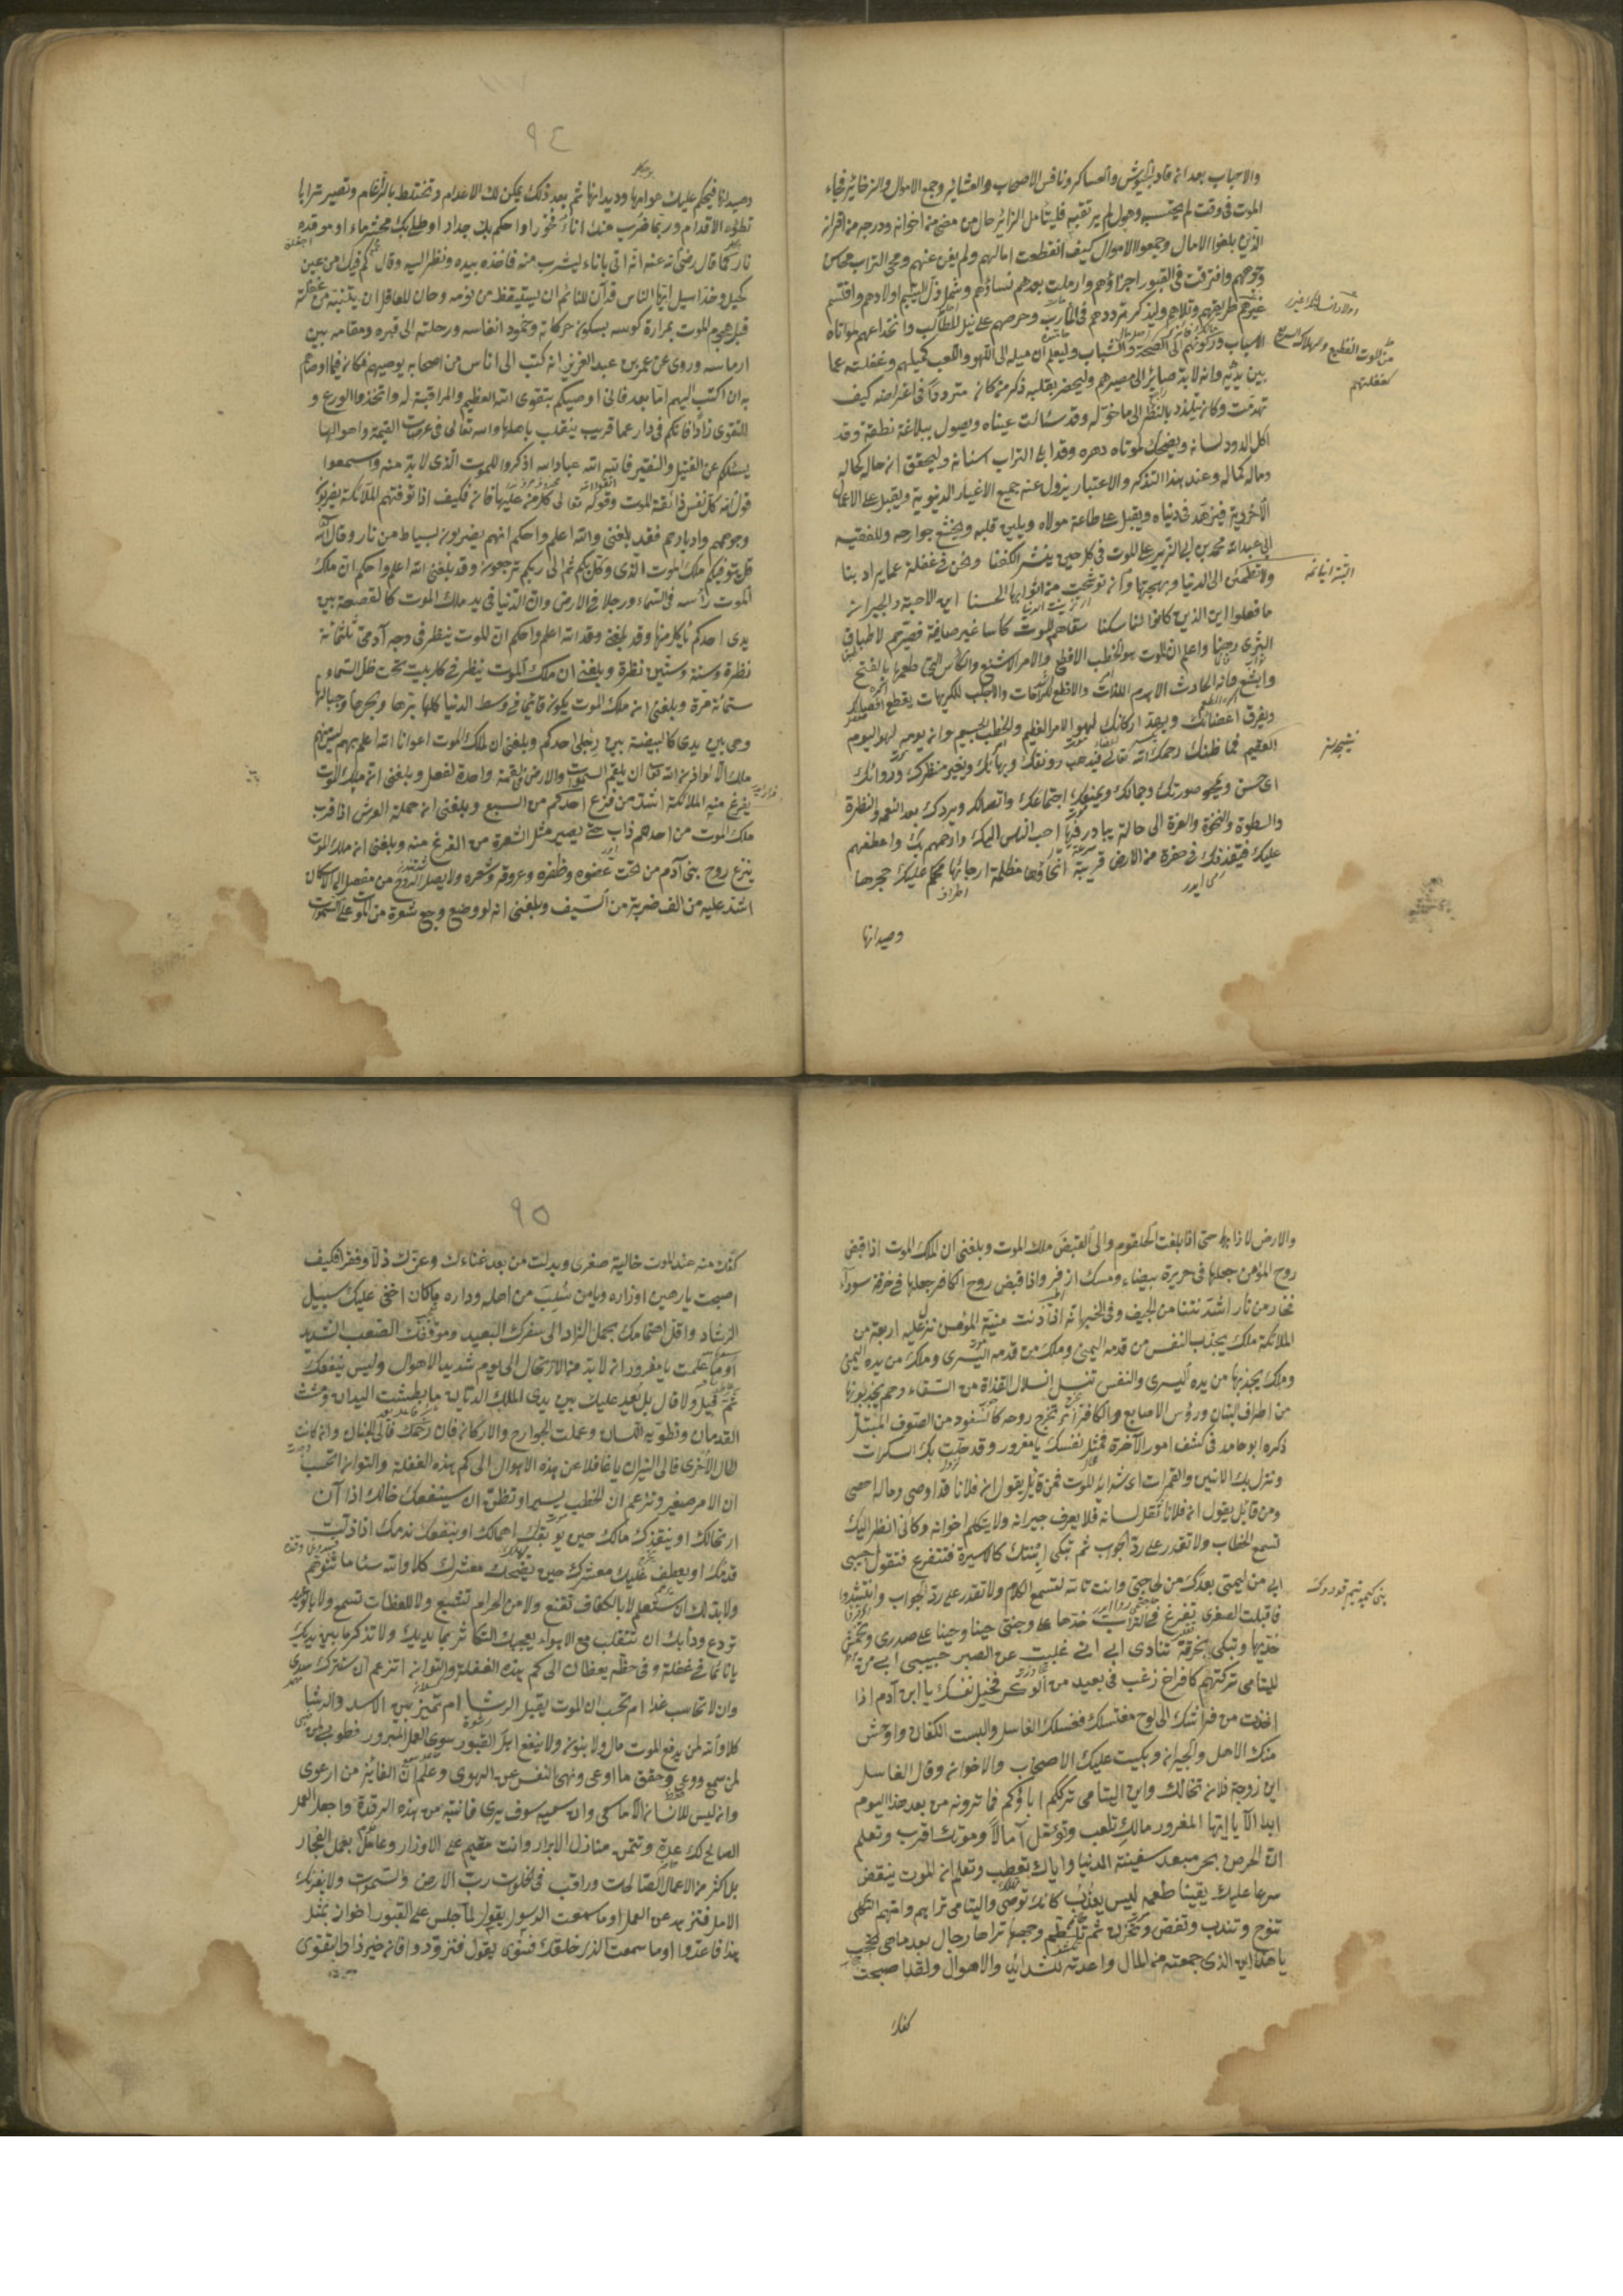 والاحباب بعد ان قاد الجيوش والعساكر ونافس الاصحاب والعشائر وجمع الاموال والذخائر فجاءه
الموت في وقت لم يحتسبه وهول لم يرتقبه فليتأمل الزائر حال من مضى من اخوانه ودرج من اقرانه
الذين بلغوا الامال وجمعوا الاموال كيف انقطعت امالهم ولم يغن عنهم ومحى التراب محاسن
وجوههم وافترقت في القبور اجزاؤهم وارملت بعدهم نساؤهم وشمل ذل اليتيم اولادهم واقتسم
غيرهم طريقهم وتلادهم وليذكر ترددهم في المآرب وحرصهم على نيل المطالب وانخداعهم لمواتاة
الاسباب وركونهم الى الصحة والشباب وليعلم ان ميله الى اللهو واللعب كميلهم وغفلته عما
بين يديه وانه لابد صائر الى مصيرهم وليحضر بقلبه ذكر من كان مترددا في اغراضه كيف
تهدمت وكان يتلذذ بالنظر الى ما خوله وقد سالت عيناه ويصول ببلاغة نطقه وقد
اكل الدود لسانه ويضحك لمواتاة دهره وقد ابلى التراب اسنانه وليحقق ان حاله كحاله
وماله كماله وعند هذا التذكر والاعتبار يزول عنه جميع الاغيار الدنيوية ويقبل على الاعمال
الاخروية فيزهد في دنياه ويقبل على طاعة مولاه ويلين قلبه ويخشع جوارحه وللفقيه
ابي عبد الله محمد بن ابي الزبير على الموت في كل حين ينشر الكفنا ونحن في غفلة عما يراد بنا
ولا تطمئن الى الدنيا وبهجتها وان توشحت من اثوابها الحسنا اين الاحبة والجيران
ما فعلوا اين الذين كانوا لنا سكنا سقاهم الموت كأسا غير صافية فصيرهم لاطباق
الثرى رهنا واعلم ان الموت هو الخطب الافظع والامر الاشنع والكأس التي طعمها
وابشع وانه الحادث الاهدم للذات والاقطع للراحات والاجلب للكريهات يقطع اوصالك
ويفرق اعضائك ويهد اركانك لهو الامر العظيم والخطب الجسيم وان يومه لهو اليوم
العقيم فما ظنك رحمك الله تعالى فيذهب رونقك وبهائك ويغير منظرك وروائك
اي حسن ويمحو صورتك وجمالك ويمنعك اجتماعك واتصالك ويردك بعد النعمة والنظرة
والسطوة والنخوة والعزة الى حالة يبادر فيها احب الناس اليك وارحمهم بك واعطفهم
عليك فيقذفك في حفرة من الارض قريبة انحاؤها مظلمة ارجاؤها محكم عليك حجرها
وصيدانها
٩٤
وصيدانها فيحكم عليك هوامها وديدانها ثم بعد ذلك يمكن لك الاعدام وتختلط بالرغام وتصير ترابا
تطؤه الاقدام وربما ضرب منك اناء فخار او احكم بك جدار او طلي بك محش ماء او موقدة
نار كما قال رضي الله عنه انه اتى باناء ليشرب منه فاخذه بيده ونظر اليه وقال كم فيك من عين
كحيل وخد اسيل ايها الناس قد آن للنائم ان يستيقظ من نومه وحان للعاقل ان يتنبه من غفلته
قبل هجوم الموت بمرارة كوسه بسكون حركاته وخمود انفاسه ورحلته الى قبره ومقامه بين
ارماسه وروى عن عمر بن عبد العزيز انه كتب الى اناس من اصحابه يوصيهم فكان فيما اوصاهم
به ان اكتب اليهم اما بعد فاني اوصيكم بتقوى الله العظيم والمراقبة له واتخذوا الورع و
التقوى زادا فانكم في دار عما قريب ينقلب باهلها والله تعالى في عرصات القيمة واهوالها
يسئلكم عن الفتيل والنقير فالله الله عباد الله اذكروا الموت الذي لابد منه واسمعوا
قول الله كل نفس ذائقة الموت وقوله تعالى كل من عليها فان فكيف اذا توفتهم الملائكة يضربون
وجوههم وادبارهم فقد بلغني والله اعلم واحكم انهم يضربون بسياط من نار وقال الله
قل يتوفيكم ملك الموت الذي وكل بكم ثم الى ربكم ترجعون وقد بلغني الله اعلم واحكم ان ملك
الموت رأسه في السماء ورجلاه في الارض وان الدنيا في يد ملك الموت كالقصعة بين
يدي احدكم يأكل منها وقد بلغني وقد الله اعلم واحكم ان الموت ينظر في وجه آدمي ثلثمائة
نظرة وستة وستين نظرة وبلغني ان ملك الموت ينظر في كل بيت تحت ظل السماء
ستمائة مرة وبلغني ان ملك الموت يكون قائما في وسط الدنيا كلها برها وبحرها وجبالها
وهي بين يدي كالبيضة بين رجلي احدكم وبلغني ان لملك الموت اعوانا الله اعلم بهم ليس منهم
ملك الا لو اذن الله تعالى ان يلقم السموات والارض في لقمة واحدة لفعل وبلغني ان ملك الموت
يفزع منه الملائكة اشد من فزع احدكم من السبع وبلغني ان حملة العرش اذا قرب
ملك الموت من احدهم ذاب حتى يصير مثل الشعرة من الفزع منه وبلغني ان ملك الموت
ينزع روح بني آدم من تحت عضوه وظفره وعروقه وشعره ولا يصل الروح من مفصل الا كان
اشد عليه من الف ضربة من السيف وبلغني انه لو وضع وجع شعرة من الموت على السموات
والارض لاذابها حتى اذا بلغت الحلقوم والى القبض ملك الموت وبلغني ان الملك الموت اذا قبض
روح المؤمن جعلها في حريرة بيضاء ومسك اذفر واذا قبض روح الكافر جعلها في خرقة سوداء
فخار من نار اشد نتنا من الجيف وفي الخبر انه اذا دنت منية المؤمن نزل عليه اربعة من
الملائكة ملك يجذب النفس من قدمه اليمنى وملك من قدمه اليسرى وملك من يده اليمنى
وملك يجذبها من يده اليسرى والنفس تنسل انسلال القذاة من السقاء وهم يجذبونها
من اطراف البنان ورؤس الاصابع والكافر تخرج روحه كالسفود من الصوف المبتل
ذكره ابو حامد في كشف امور الآخرة فمثل نفسك يا مغرور وقد حلت بك السكرات
ونزل بك الانين والغمرات اي شدايد الموت فمن قائل يقول ان فلانا قد اوصى وماله احصى
ومن قائل يقول ان فلانا ثقل لسانه فلا يعرف جيرانه ولا يكلم اخوانه وكاني انظر اليك
تسمع الخطاب ولا تقدر على رد الجواب ثم تبكي ابنتك كالاسيرة فتتضرع فتقول حبيبي
ابي من ليتمي بعدك من لحاجتي وانت تالله لتسمع الكلام ولا تقدر على رد الجواب وانشدوا
فاقبلت الصغرى تمرغ في التراب خدها على وجنتي حينا وحينا على صدري وتخمش
خديها وتبكي بحرقة تنادي ابي اني غلبت عن الصبر حبيبي ابي من
لليتامى تركتهم كافراخ زغب في بعيد من الوكر فخيل نفسك يا ابن آدم اذا
اخذت من فراشك الى لوح مغتسلك فغسلك الغاسل والبست الكفان واوحش
منك الاهل والجيران وبكيت عليك الاصحاب والاخوان وقال الغاسل
اين زوجة فلان تخالك واين اليتامى ترككم اباؤكم فما ترونه من بعد هذا اليوم
ابدا الا يا ايها المغرور مالك تلعب وتؤمل آمالا وموتك اقرب وتعلم
ان الحرص بحر مبعد سفينته الدنيا واياك تعطب وتعلم ان الموت ينقض
سرعا عليك يقينا طعمه ليس يعذب كانك توصي واليتامى تراهم وامهم الثكلى
تنوح وتندب وتغض وتحزن ثم تلطم وجهها تراها رجال بعد ما هي تحجب
يا هذا اين الذي جمعته من المال واعددته للشدائد والاهوال ولقد اصبحت
كفك
٩٥
كفك منه عند الموت خالية صفرى وبدلت من بعد غناءك وعزك ذلا وفقرا فكيف
اصبحت يا رهين اوزاره ويا من سلب من اهله وداره ما كان اخفى عليك سبيل
الرشاد واقل اهتمامك بحمل الزاد الى سفرك البعيد وموقفك الصعب الشديد
اوما علمت يا مغرور ان لابد من الارتحال الى يوم شديد الاهوال وليس ينفعك
ثم قيل ولا قال بل يعد عليك بين يدي الملك الديان ما بطشت اليدان ومشت
القدمان ونطق به اللسان وعملت الجوارح والاركان فان رحمك فالى الجنان وان كانت
الحال الاخرى فالى النيران يا غافلا عن هذه الاهوال الى كم هذه الغفلة والتوان اتحسب
ان الامر صغير وتزعم ان الخطب يسير او تظن ان سينفعك حالك اذا آن
ارتحالك او ينقذك مالك حين توبقك اعمالك او ينفعك ندمك اذا زلت
قدمك او يعطف عليك معشرك حين يضحك معشرك كلا والله ساء ما تتوهم
ولابد لك ان ستعلم لا بالكفاف تقنع ولا من الحرام تشبع ولا للعظات تسمع ولا بالوعيد
تردع ودأبك ان تتقلب مع الاهواء يعجبك التكاثر بما لديك ولا تذكر ما بين يديك
يا نائما في غفلة وفي حظه يغطان الى كم هذه الغفلة والتوان اتزعم ان ستترك سدى
وان لا تحاسب غدا ام تحسب ان الموت يقبل الرشا ام تميز بين الاسد والرشا
كلا والله لن يدفع الموت مال ولا بنون ولا ينفع اهل القبور سوى العمل المبرور فطوبى
لمن سمع ووعى وحقق ما ادعى ونهى النفس عن الهوى وعلم ان الفائز من ارعوى
وان ليس للانسان الا ما سعى وان سعيه سوف يرى فانتبه من هذه الرقدة واجعل العمل
الصالح لك عدة وتتمن منازل الابرار وانت مقيم على الاوزار وعامل بعمل الفجار
بل اكثر من الاعمال الصالحات وراقب في الخلوات رب الارض والسموات ولا يغرنك
الامل فتزهد عن العمل اوما سمعت الرسول يقول لما جلس على القبور اخوان بمثل
هذا فاعدوا اوما سمعت الذي خلقك فسوى يقول فتزودوا فان خير الزاد التقوى